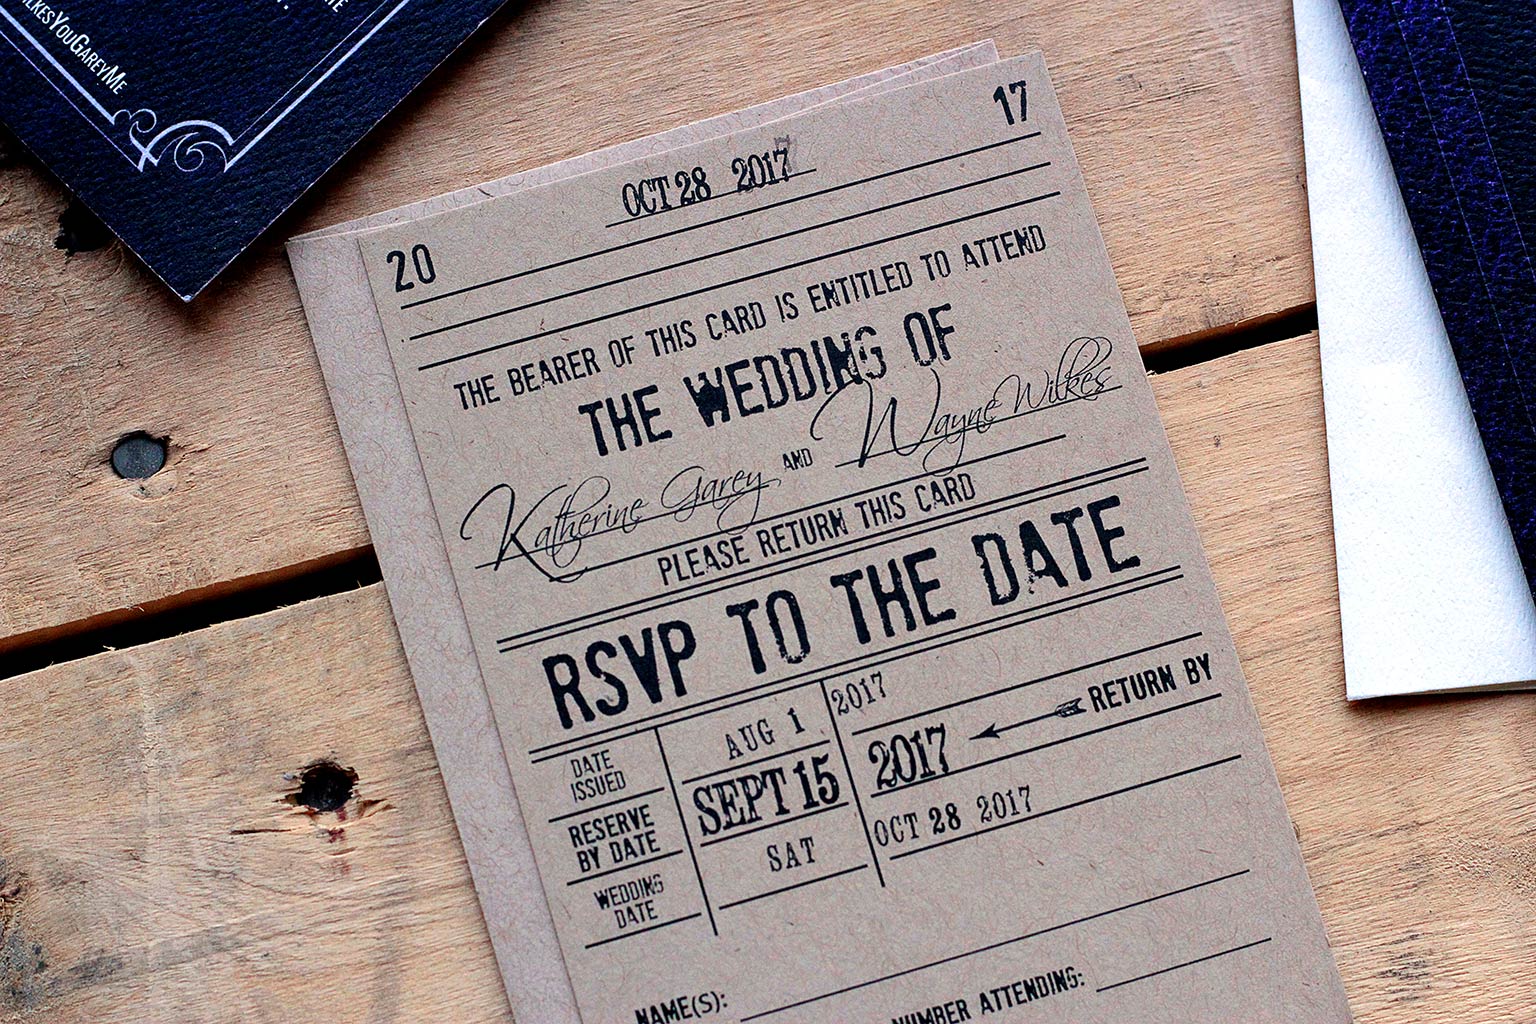 WILKESYOUGAREYME
20 17
OCT 28 2017
THE BEARER OF THIS CARD IS ENTITLED TO ATTEND
THE WEDDING OF
Katherine Garey AND Wayne Wilkes
PLEASE RETURN THIS CARD
RSVP TO THE DATE
DATE ISSUED AUG 1 2017
RESERVE BY DATE SEPT 15 2017 RETURN BY
WEDDING DATE SAT OCT 28 2017
NAME(S):
NUMBER ATTENDING: